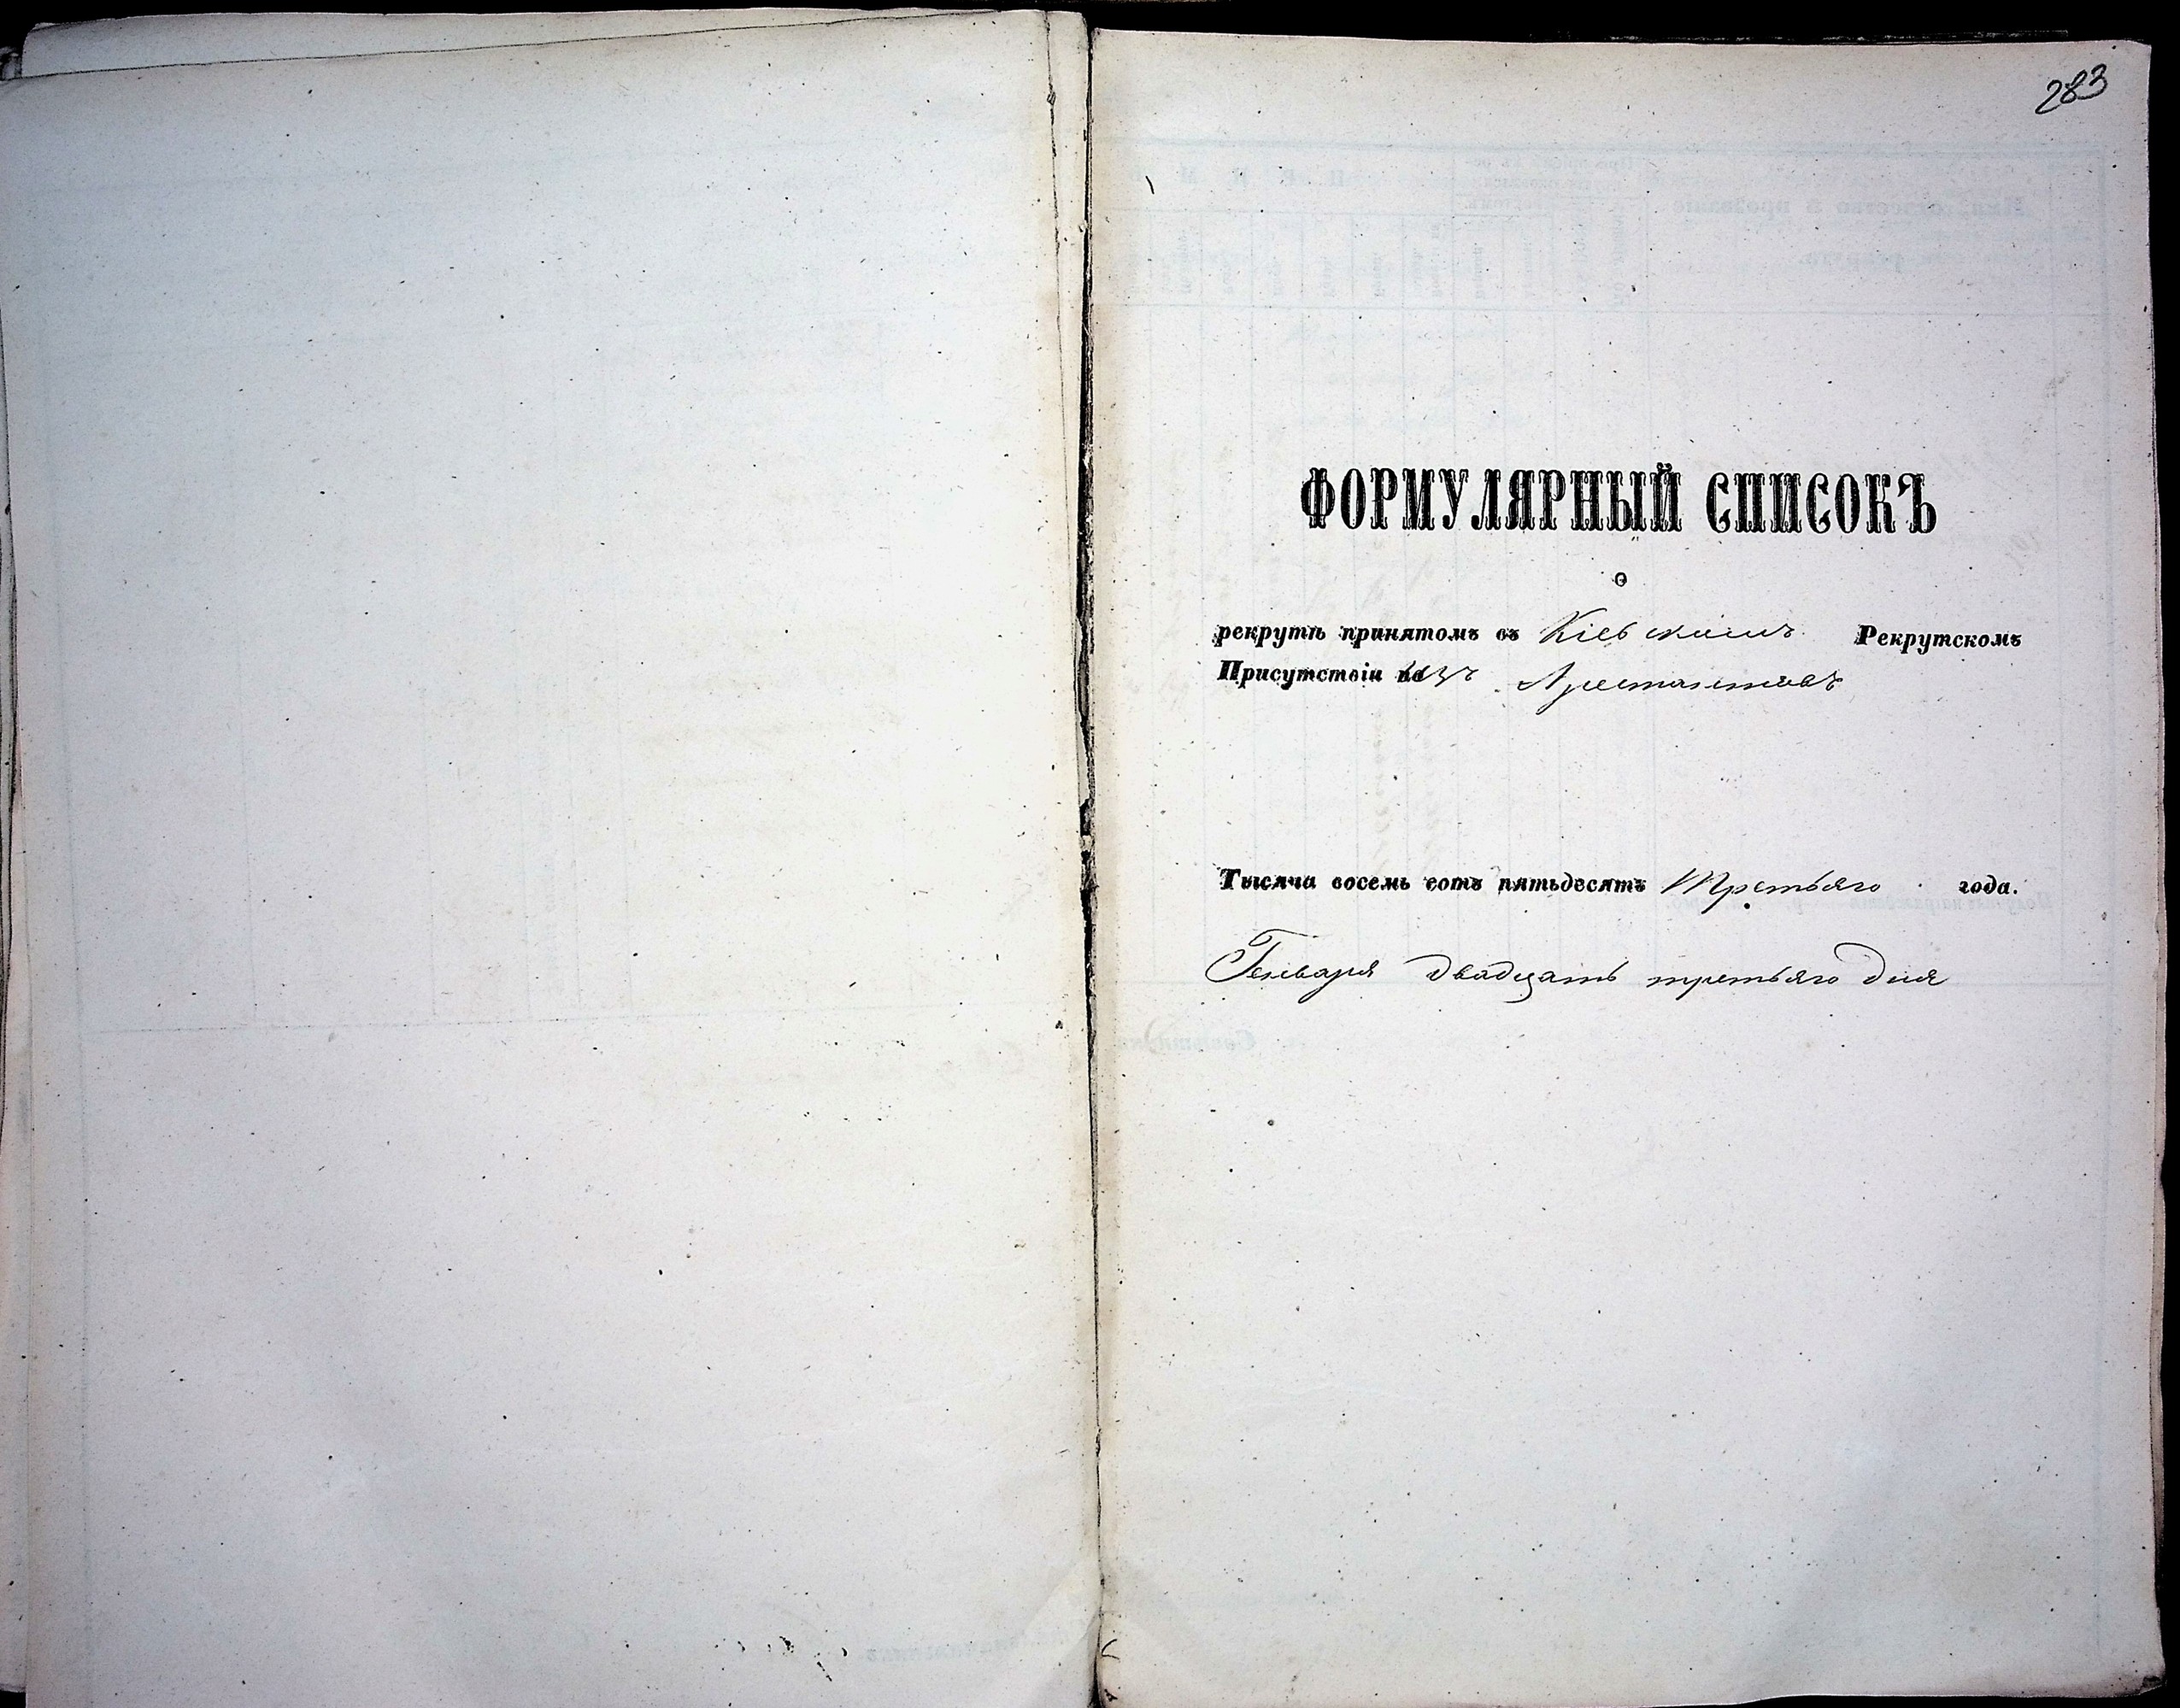 283
ФОРМУЛЯРНЫЙ СПИСОКЪ
о
рекрутѣ принятомъ въ Кіевскомъ Рекрутскомъ
Присутствіи изъ Арестантовъ
Тысяча восемь сотъ пятьдесятъ Третьяго года.
Генваря двадцать третьяго дня